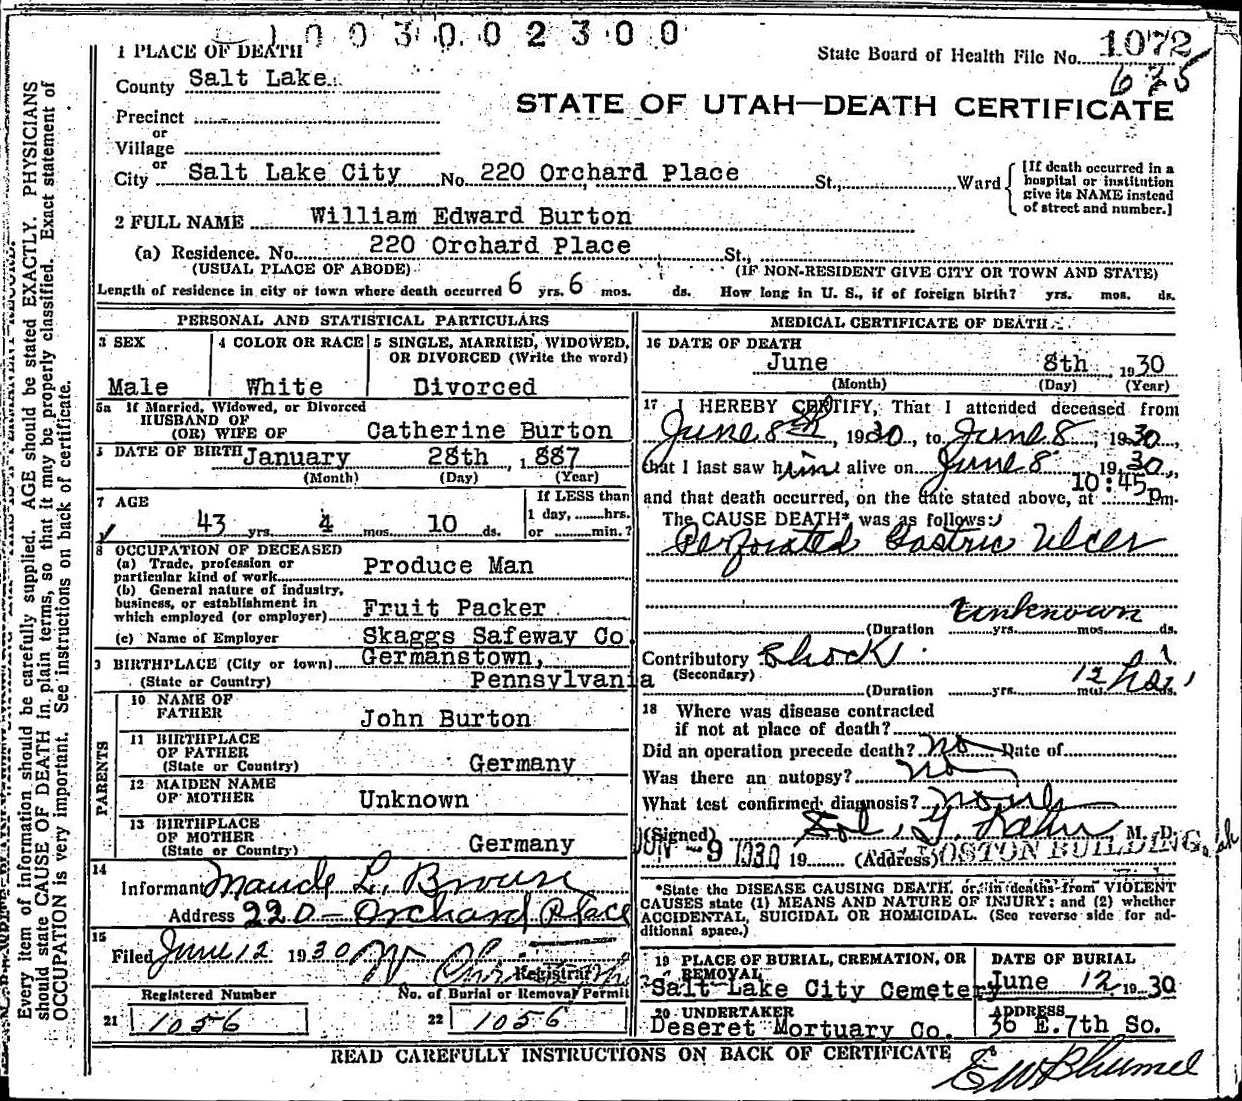 1 0 0 3 0 0 2 3 0 0
1 PLACE OF DEATH
State Board of Health File No. 1072
675
County Salt Lake
STATE OF UTAH—DEATH CERTIFICATE
Precinct
or
Village
or
City Salt Lake City No. 220 Orchard Place St., Ward
[If death occurred in a hospital or institution give its NAME instead of street and number.]
2 FULL NAME William Edward Burton
(a) Residence. No. 220 Orchard Place St.,
(USUAL PLACE OF ABODE) (IF NON-RESIDENT GIVE CITY OR TOWN AND STATE)
Length of residence in city or town where death occurred 6 yrs. 6 mos. ds. How long in U. S., if of foreign birth? yrs. mos. ds.
PERSONAL AND STATISTICAL PARTICULARS
3 SEX
Male
4 COLOR OR RACE
White
5 SINGLE, MARRIED, WIDOWED,
OR DIVORCED (Write the word)
Divorced
5a If Married, Widowed, or Divorced
HUSBAND OF
(OR) WIFE OF Catherine Burton
DATE OF BIRTH January 28th , 1 887
(Month) (Day) (Year)
7 AGE
43 yrs. 4 mos. 10 ds.
If LESS than
1 day, hrs.
or min.?
8 OCCUPATION OF DECEASED
(a) Trade, profession or
particular kind of work Produce Man
(b) General nature of industry,
business, or establishment in
which employed (or employer) Fruit Packer
(c) Name of Employer Skaggs Safeway Co
9 BIRTHPLACE (City or town) Germanstown,
(State or Country) Pennsylvania
PARENTS
10 NAME OF
FATHER John Burton
11 BIRTHPLACE
OF FATHER
(State or Country) Germany
12 MAIDEN NAME
OF MOTHER Unknown
13 BIRTHPLACE
OF MOTHER
(State or Country) Germany
14
Informant Maude L. Brown
Address 220 - Orchard Place
15
Filed June 12 1930
Registrar
Registered Number
21 1056
No. of Burial or Removal Permit
22 1056
MEDICAL CERTIFICATE OF DEATH
16 DATE OF DEATH
June 8th , 1930
(Month) (Day) (Year)
17 I HEREBY CERTIFY, That I attended deceased from
June 8th, 1930, to June 8, 1930,
that I last saw him alive on June 8 1930,
and that death occurred, on the date stated above, at 10:45 pm.
The CAUSE DEATH* was as follows:
Perforated Gastric Ulcer
Unknown
(Duration yrs. mos. ds.
Contributory Shock
(Secondary) 12 hrs.
(Duration yrs. mos. ds.
18 Where was disease contracted
if not at place of death?
Did an operation precede death? no Date of
Was there an autopsy? no
What test confirmed diagnosis?
(Signed) Sol. G. Kahn M. D.
JUN -9 1930 19 (Address) BOSTON BUILDING,
*State the DISEASE CAUSING DEATH, or, in deaths from VIOLENT
CAUSES state (1) MEANS AND NATURE OF INJURY: and (2) whether
ACCIDENTAL, SUICIDAL OR HOMICIDAL. (See reverse side for ad-
ditional space.)
19 PLACE OF BURIAL, CREMATION, OR
REMOVAL
Salt Lake City Cemetery
DATE OF BURIAL
June 12 1930
20 UNDERTAKER
Deseret Mortuary Co.
ADDRESS
36 E. 7th So.
READ CAREFULLY INSTRUCTIONS ON BACK OF CERTIFICATE
E W Blumel
Every item of information should be carefully supplied. AGE should be stated EXACTLY. PHYSICIANS
should state CAUSE OF DEATH in plain terms, so that it may be properly classified. Exact statement of
OCCUPATION is very important. See instructions on back of certificate.